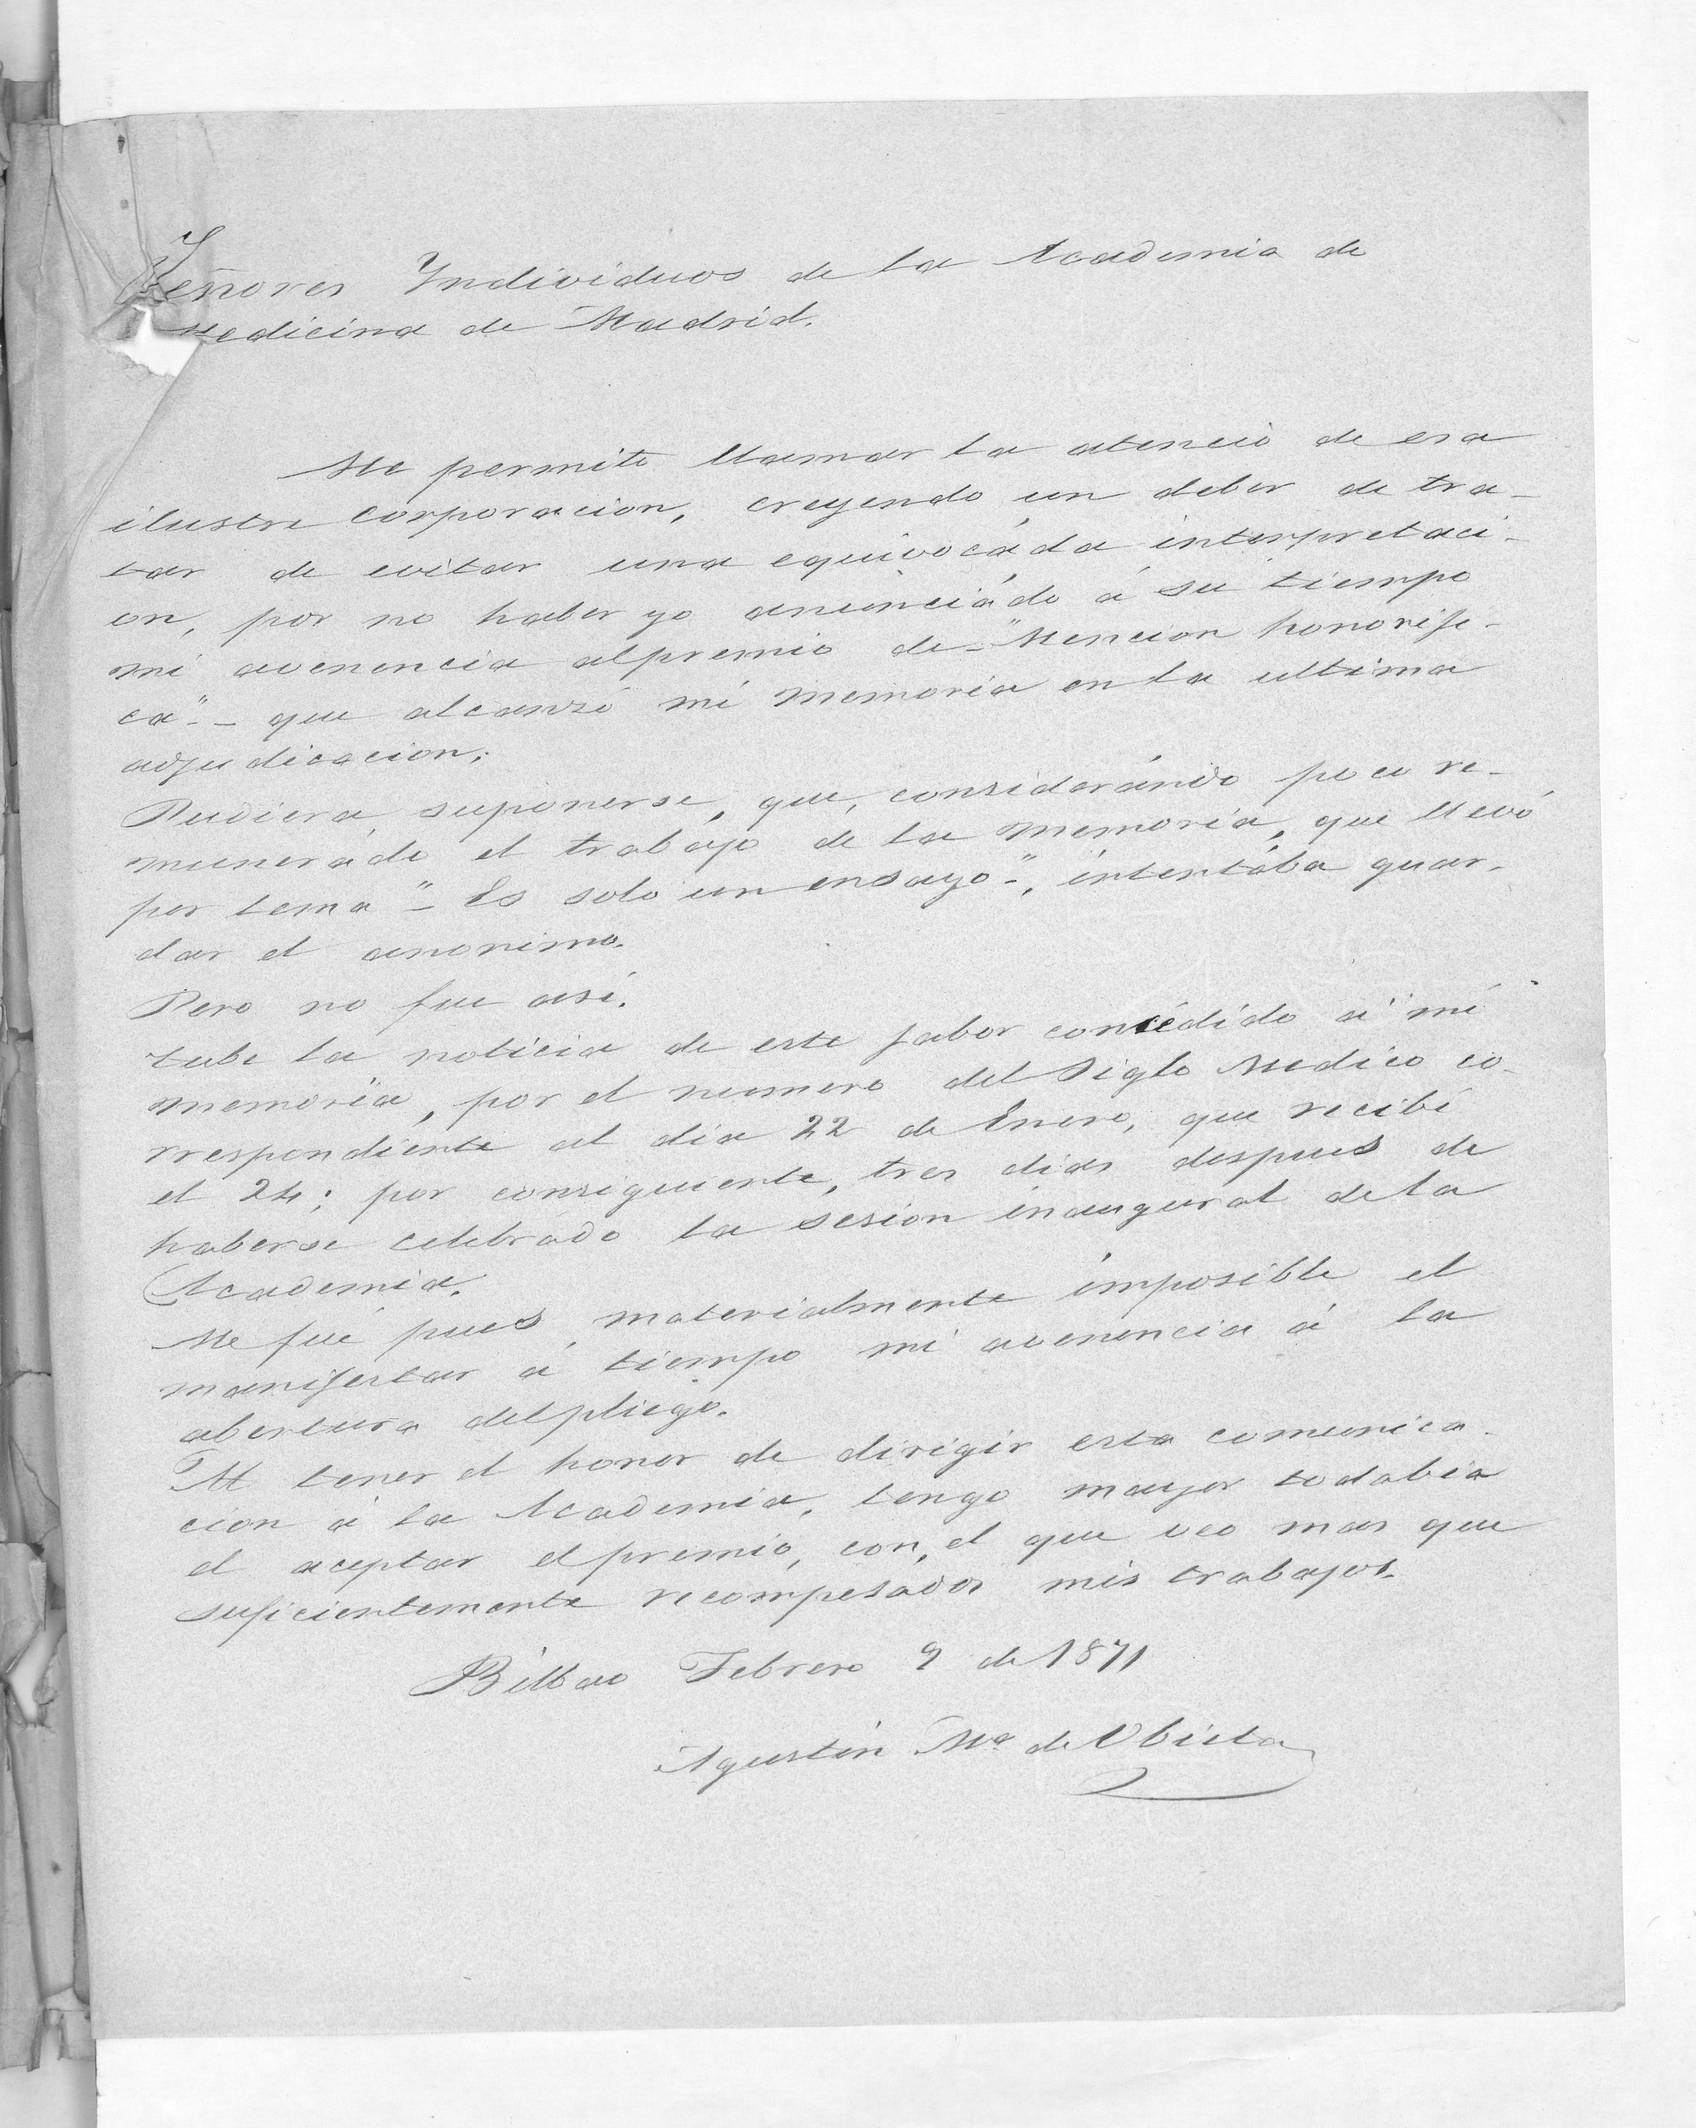 Señores Yndividuos de la Academia de
Medicina de Madrid.
Me permito llamar la atencio de esa
ilustre corporacion, creyendo un deber de tra-
tar de evitar una equivocáda interpretaci-
on, por no haber yo anunciádo á su tiempo
mi avenencia al premio de-"Mencion honorifi-
ca"-- que alcanzó mi memoria en la ultima
adjudicacion.
Pudiera suponerse, que, considerándo poco re-
munerádo el trabajo de la memoria, que llevó
por tema "- Es solo un ensayo-", intentába guar-
dar el anonimo.
Pero no fue así.
tube la noticia de este fabor concedido a mi
memoria, por el numero del Siglo Medico co-
rrespondiente al dia 22 de Enero, que recibí
el 24; por consiguiente, tres dias despues de
haberse celebrado la sesion inaugural de la
Academia.
Me fué pues materialmente imposible el
manifestar á tiempo mi avenencia á la
abertura del pliego.
Al tener el honor de dirigir esta comunica-
cion á la Academia, tengo mayor todabia
el aceptar el premio, con el que veo mas que
suficientemente recompesádos mis trabajos.
Bilbao Febrero 9 de 1871
Agustin Mª de Obieta